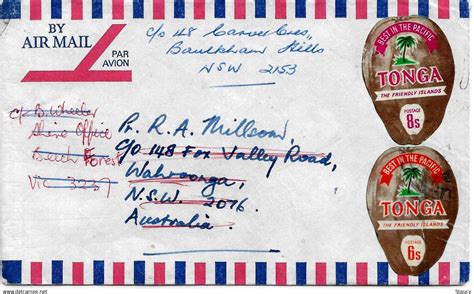 BY
AIR MAIL
PAR
AVION
c/o 148 Carver Cres,
Baulkham Hills
NSW 2153
BEST IN THE PACIFIC
TONGA
THE FRIENDLY ISLANDS
POSTAGE
8s
c/- B. Wheeler
Shire Office
Beech Forest
VIC 3237
R. A.
C/O 148 Fox Valley Road,
Wahroonga,
N.S.W. 2076
Australia.
BEST IN THE PACIFIC
TONGA
THE FRIENDLY ISLANDS
POSTAGE
6s